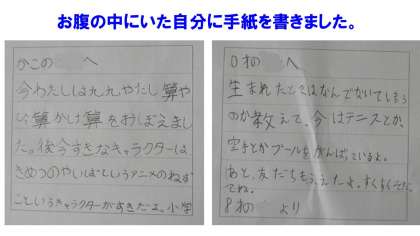 お腹の中にいた自分に手紙を書きました。
かこの　　へ
今わたしは九九やたし算や
ひき算かけ算をおぼえまし
た。後今すきなキャラクターは
きめつのやいばというアニメのねず
こというキャラクターがすきだよ。小学
0才の　　へ
生まれたときはなんでないてしまう
のか教えて、今はテニスとか、
空手とかプールをがんばっているよ。
あと、友だちもふえたよ。すくすくそだっ
てね。
8才の　　より